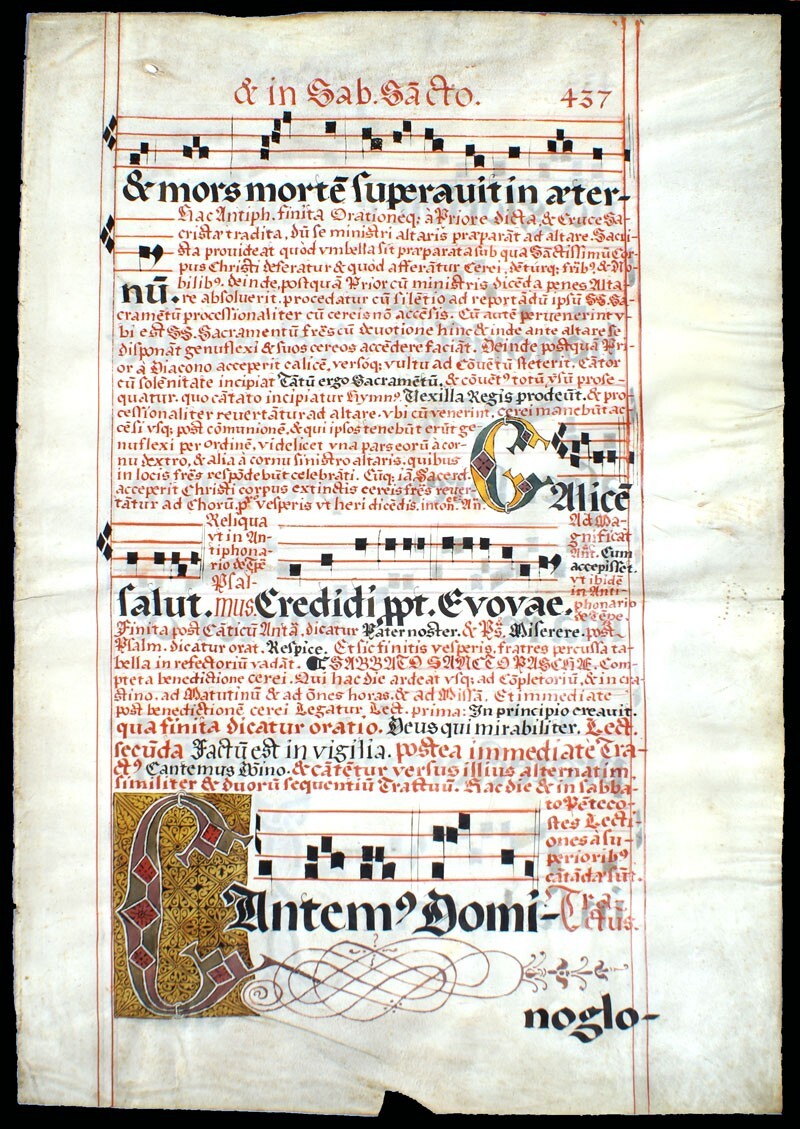 & in Sab. Sācto. 437
& mors mortē superauit in æter-
Hac Antiph. finita Orationeq; à Priore dicta, & Cruce Sa-
cristæ tradita, dū se ministri altaris præparāt ad altare. Sacri-
sta prouideat quòd vmbella sit præparata sub qua Sāctissimū Cor-
pus Christi deferatur & quòd afferātur Cerei, dēturq; frībꝰ & No-
bilibꝰ. deinde, postquā Prior cū ministris dicēda penes Alta-
nū. re absoluerit. procedatur cū silētio ad reportādū ipsū SS. Sa-
cramētū processionaliter cū cereis nō accēsis. Cū autē peruenerint v-
bi est SS. Sacramentū frēs cū deuotione hinc & inde ante altare se
disponāt genuflexi & suos cereos accēdere faciāt. Deinde postquā Pri-
or à Diacono acceperit calicē, versoq; vultu ad Cōuētū steterit. Cātor
cū solēnitate incipiat Tātū ergo Sacramētū, & cōuētꝰ totū ꝟsū prose-
quatur. quo cātato incipiatur hymnꝰ Vexilla Regis prodeūt. & pro-
cessionaliter reuertātur ad altare. vbi cū venerint. cerei manebūt ac-
cēsi vsq; post cōmunionē, & qui ipsos tenebūt erūt ge-
nuflexi per ordinē, videlicet vna pars eorū à cor-
nu dextro, & alia à cornu sinistro altaris. quibus
in locis frēs respōdebūt celebrāti. Cūq; iā Sacerd.
acceperit Christi corpus extinctis cereis frēs reuer-
tātur ad Chorū, ꝓ vesperis vt heri dicēdis. inton. An.
CAlicē
Reliqua
vt in An-
tiphona-
rio de Tpē
Psal-
salut. mus. Credidi ppt. Evovae.
Ad Ma-
gnificat
Ant. Cum
accepisset.
vt ibidē
in Anti-
phonario
de Tēpe.
Finita post Cāticū Antā. dicatur Pater noster. & Ps. Miserere. post
Psalm. dicatur orat. Respice. Et sic finitis vesperis, fratres percussa ta-
bella in refectoriū vadāt. SABBATO SANCTO PASCHÆ. Com-
pleta benedictione cerei. Qui hac die ardeat vsq; ad Cōpletoriū, & in cra-
stino. ad Matutinū & ad ōnes horas, & ad Missā. Et immediate
post benedictionē cerei Legatur. Lect. prima: In principio creauit.
qua finita dicatur oratio. Deus qui mirabiliter. Lect.
secūda Factū est in vigilia. postea immediatè Tra-
ctꝰ Cantemus Dōino. & cātētur versus illius alternatim.
similiter & duorū sequentiū Tractuū. Hac die & in sabba-
to Pēteco-
stes Lecti-
ones à su-
perioribꝰ
cātādæ sūt.
CAntemꝰ Domi- Tra-
ctus.
no glo-